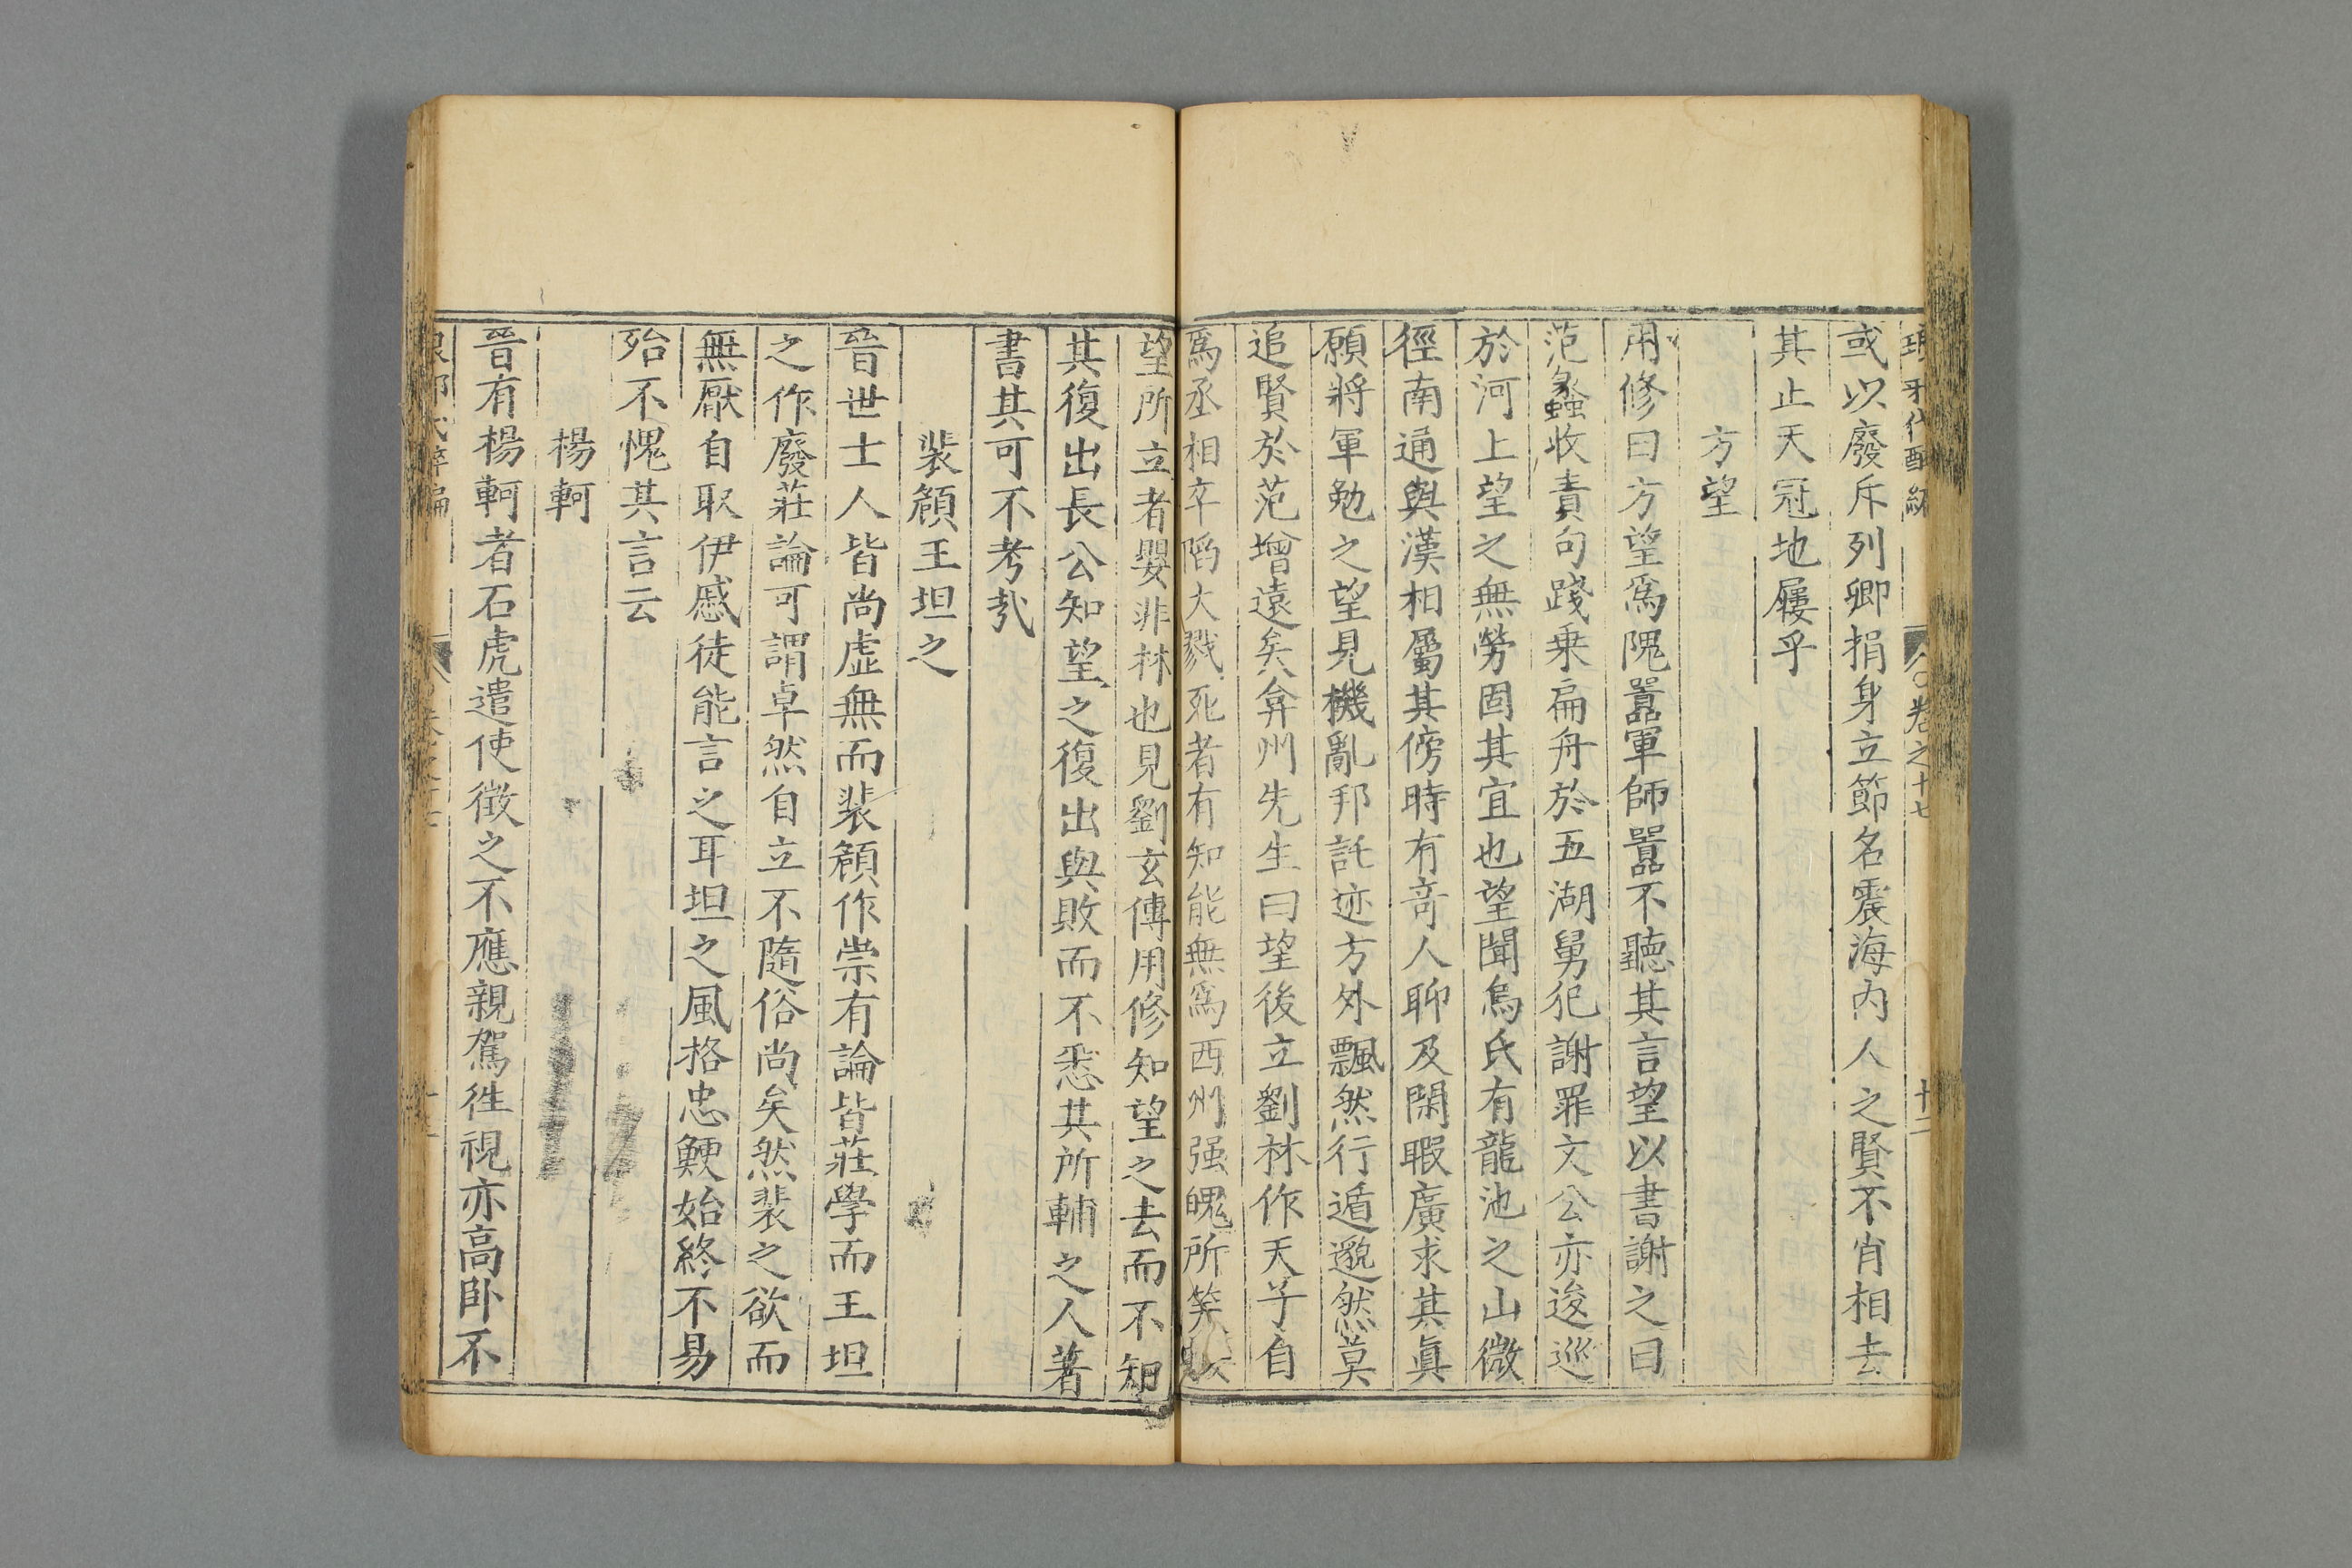 或以廢斥列卿捐身立節名震海內人之賢不肖相去
其止天冠地屨乎
方望
用修曰方望爲隗囂軍師囂不聽其言望以書謝之曰
范蠡收責句踐乗扁舟於五湖舅犯謝罪文公亦逡巡
於河上望之無勞固其宜也望聞烏氏有龍池之山微
徑南通與漢相屬其傍時有竒人聊及閑暇廣求其眞
願將軍勉之望見機亂邦託迹方外飄然行遁邈然莫
追賢於范增遠矣弇州先生曰望後立劉林作天子自
爲丞相卒陷大戮死者有知能無爲西州强魄所笑
望所立者嬰非林也見劉玄傳用修知望之去而不知
其復出長公知望之復出與敗而不悉其所輔之人著
書其可不考㢤
裴頠王坦之
晉世士人皆尚虛無而裴頠作崇有論皆莊學而王坦
之作廢莊論可謂卓然自立不隨俗尚矣然裴之欲而
無厭自取伊慼徒能言之耳坦之風格忠鯁始終不易
殆不愧其言云
楊軻
晉有楊軻者石虎遣使徵之不應親駕徃視亦高卧不